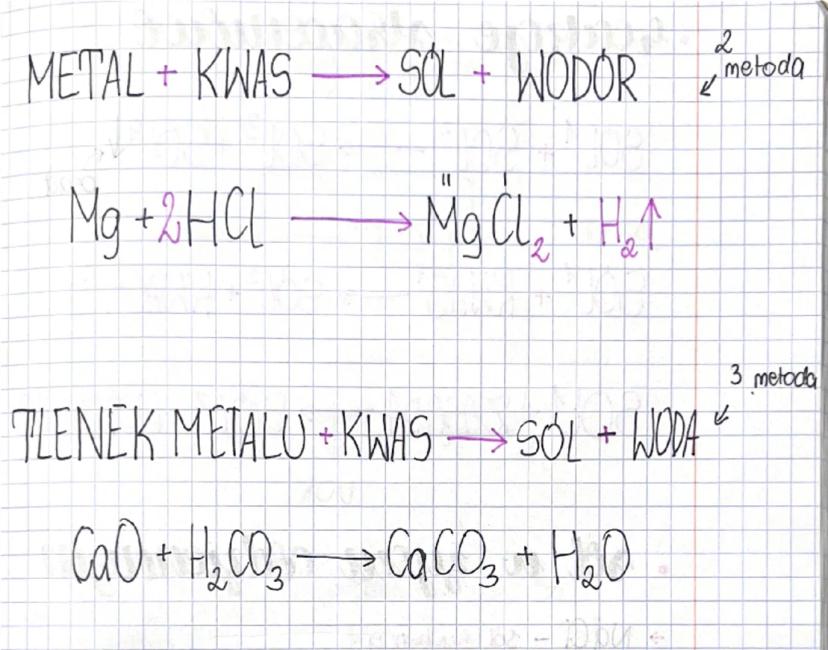 METAL + KWAS → SÓL + WODÓR
2 metoda
Mg + 2HCl → MgCl₂ + H₂↑
II I
3 metoda
TLENEK METALU + KWAS → SÓL + WODA
CaO + H₂CO₃ → CaCO₃ + H₂O